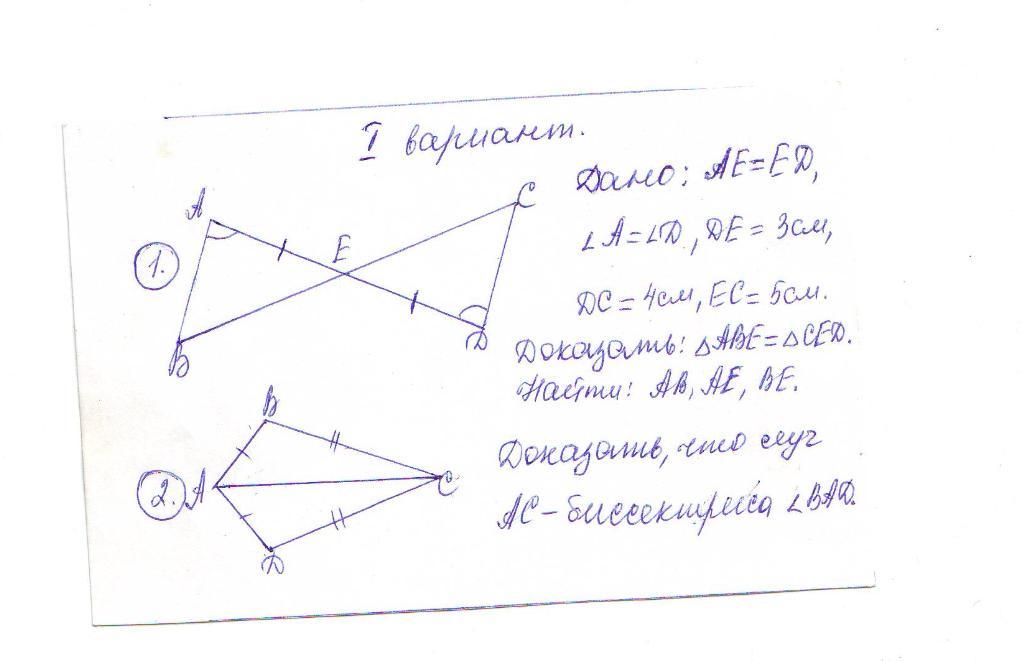 I вариант.
1.
A
B
E
C
D
Дано: AE=ED,
∠A=∠D, DE=3см,
DC=4см, EC=5см.
Доказать: △ABE=△CED.
Найти: AB, AE, BE.
2.
A
B
C
D
Доказать, что луч
AC-биссектриса ∠BAD.